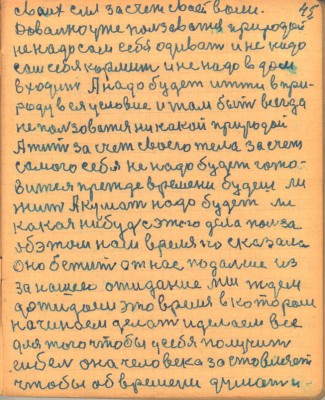 своих сил за счет своей воли.
45
Довольно уже ползоватся природой
не надо сам себя одиват и не надо
сам себя кормит и не надо в дом
входит А надо будет итти в при-
роду в ея условие и там быт всегда
не ползоватся никакой природой
А жит за счет своего тела за счет
самого себя не надо будет гото-
вится прежде времени будеш ли
жит А думат надо будет ли
какая нибуд с этого дела полза
Об этом нам время то сказала
Оно бежит от нас подалше из
за нашего ожидание мы ждем
дожидаем это время в котором
начинаем делат и делаем все
для того чтобы у себя получит
она человека заставляет
чтобы об времени думат и